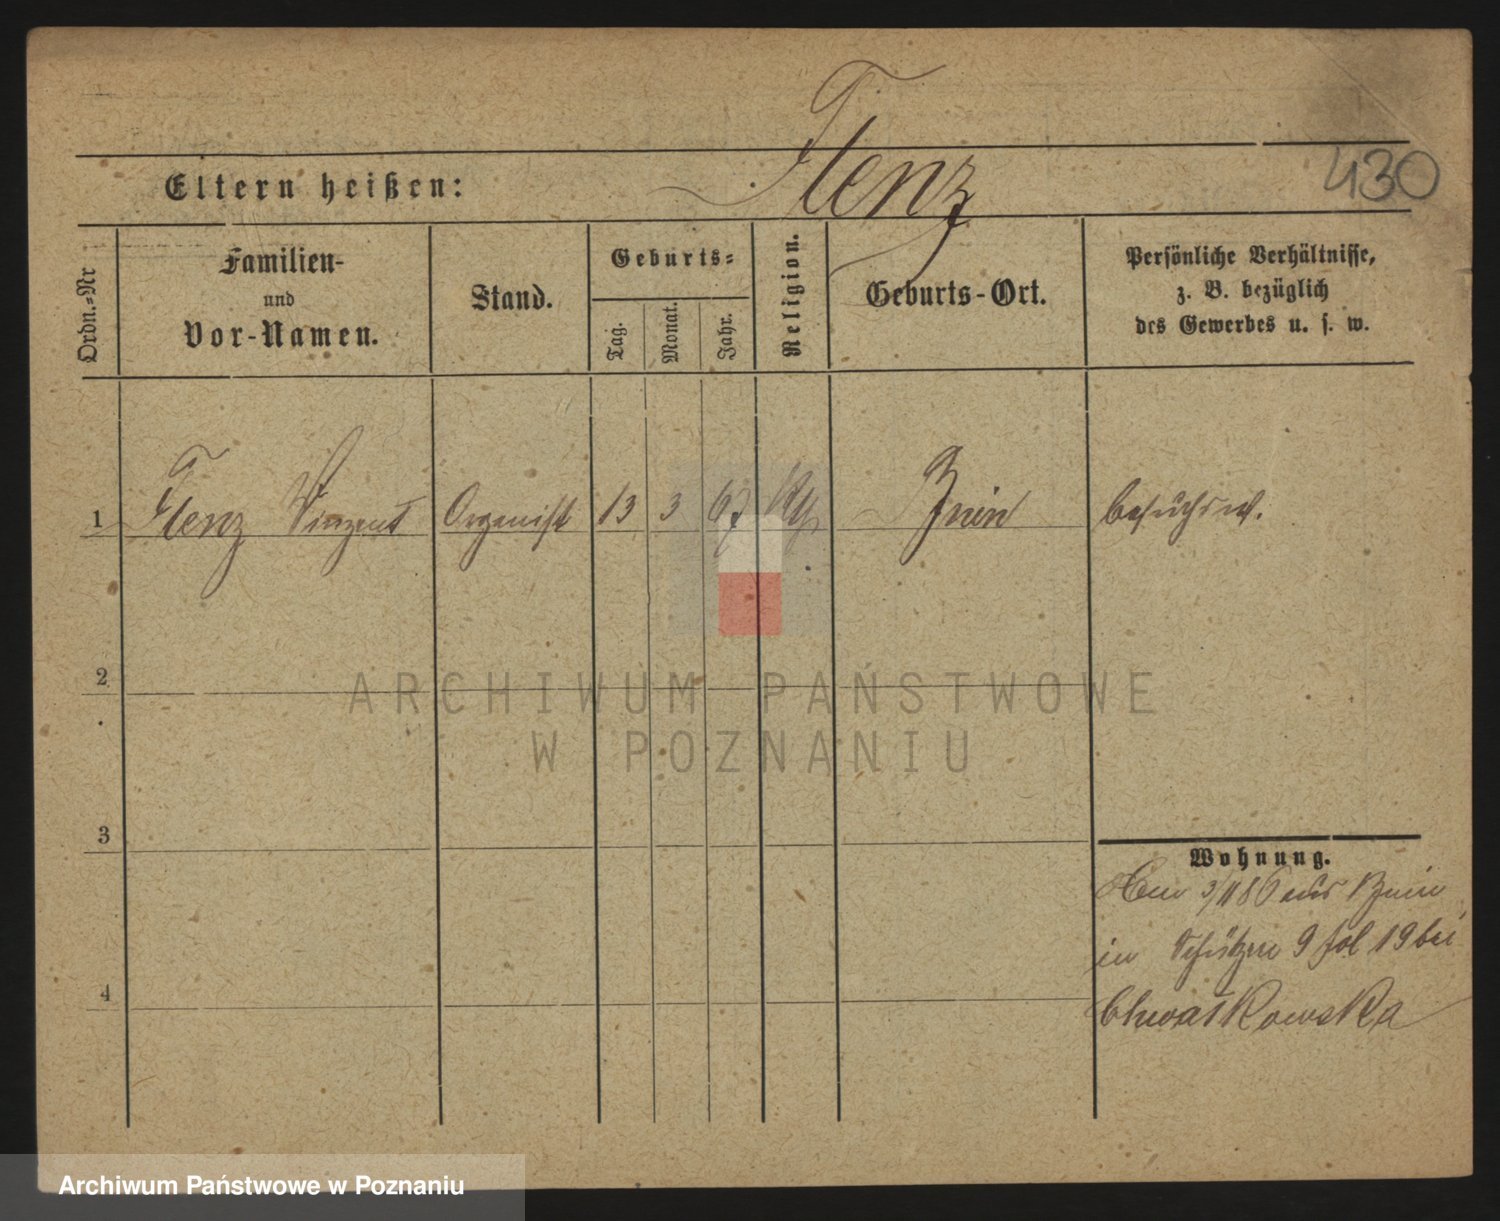 Flenz
430
Eltern heißen:
Ordn.=Nr
Familien-
und
Vor-Namen.
Stand.
Geburts=
Tag.
Monat.
Jahr.
Religion.
Geburts-Ort.
Persönliche Verhältnisse,
z. B. bezüglich
des Gewerbes u. s. w.
1 Flenz Vinzent Organist 13 3 67 Bnin besuchsw.
2
3
4
Wohnung.
3/11 86 aus Bnin
in Schützen 9 fol 19 bei
Chwatkowska
ARCHIWUM PAŃSTWOWE
W POZNANIU
Archiwum Państwowe w Poznaniu